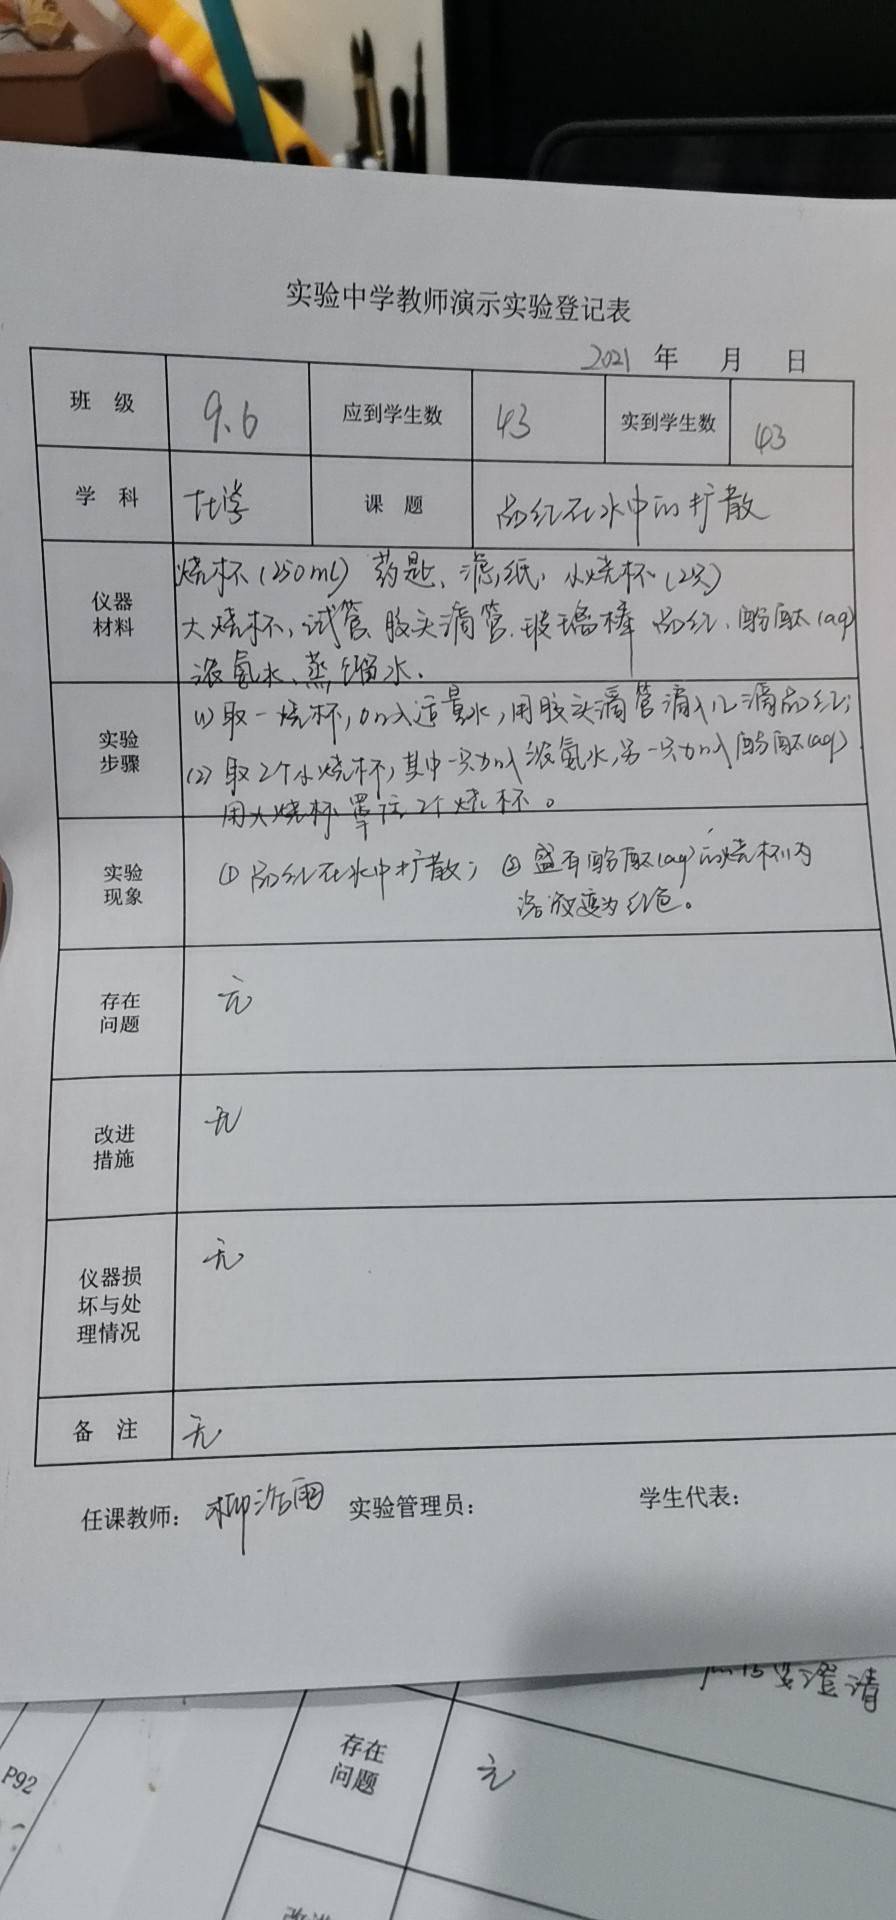 实验中学教师演示实验登记表
2021 年 月 日
班 级 9.6 应到学生数 43 实到学生数 43
学 科 化学 课 题 品红在水中的扩散
仪器
材料
烧杯(250mL) 药匙、滤纸、小烧杯(2只)
大烧杯,试管、胶头滴管、玻璃棒 品红、酚酞(aq)
浓氨水、蒸馏水.
实验
步骤
(1) 取一烧杯,加入适量水,用胶头滴管滴入几滴品红;
(2) 取2个小烧杯,其中一只加入浓氨水,另一只加入酚酞(aq)
用大烧杯罩住2个烧杯。
实验
现象
① 品红在水中扩散; ② 盛有酚酞(aq)的烧杯内
溶液变为红色。
存在
问题
无
改进
措施
无
仪器损
坏与处
理情况
无
备 注 无
任课教师: 实验管理员: 学生代表:
澄清
P92
存在
问题
无